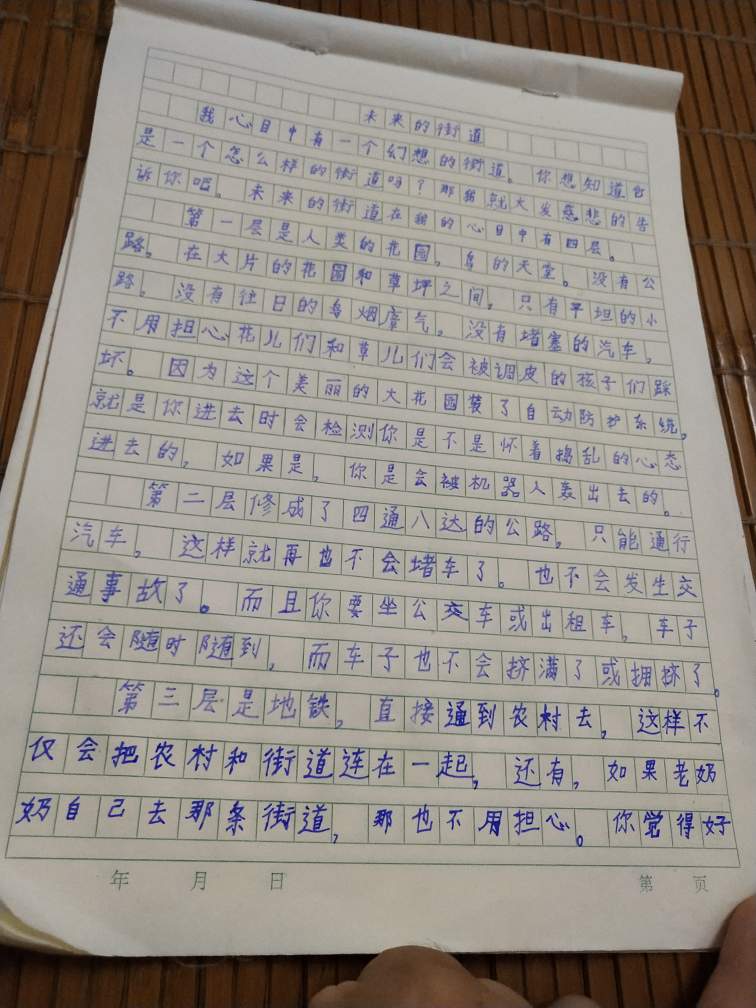 未来的街道
我心目中有一个幻想的街道。你想知道它
是一个怎么样的街道吗？那我就大发慈悲的告
诉你吧。未来的街道在我的心目中有四层。
第一层是人类的花园，鸟的天堂。没有公
路。在大片的花园和草坪之间，只有平坦的小
路。没有往日的乌烟瘴气，没有堵塞的汽车，
不用担心花儿们和草儿们会被调皮的孩子们踩
坏。因为这个美丽的大花园装了自动防护系统，
就是你进去时会检测你是不是怀着捣乱的心态
进去的，如果是，你是会被机器人轰出去的。
第二层修成了四通八达的公路。只能通行
汽车，这样就再也不会堵车了。也不会发生交
通事故了。而且你要坐公交车或出租车，车子
还会随时随到，而车子也不会挤满了或拥挤了。
第三层是地铁，直接通到农村去，这样不
仅会把农村和街道连在一起，还有，如果老奶
奶自己去那条街道，那也不用担心。你觉得好
年 月 日 第 页